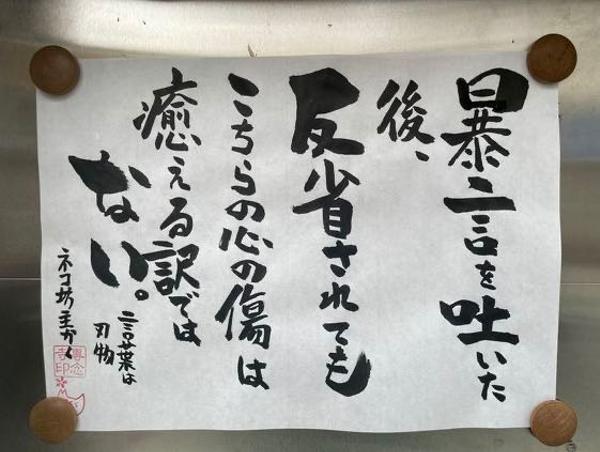 暴言を吐いた
後、
反省されても
こちらの心の傷は
癒える訳では
ない。
言葉は
刃物
ネコ坊主かく
専念
寺印